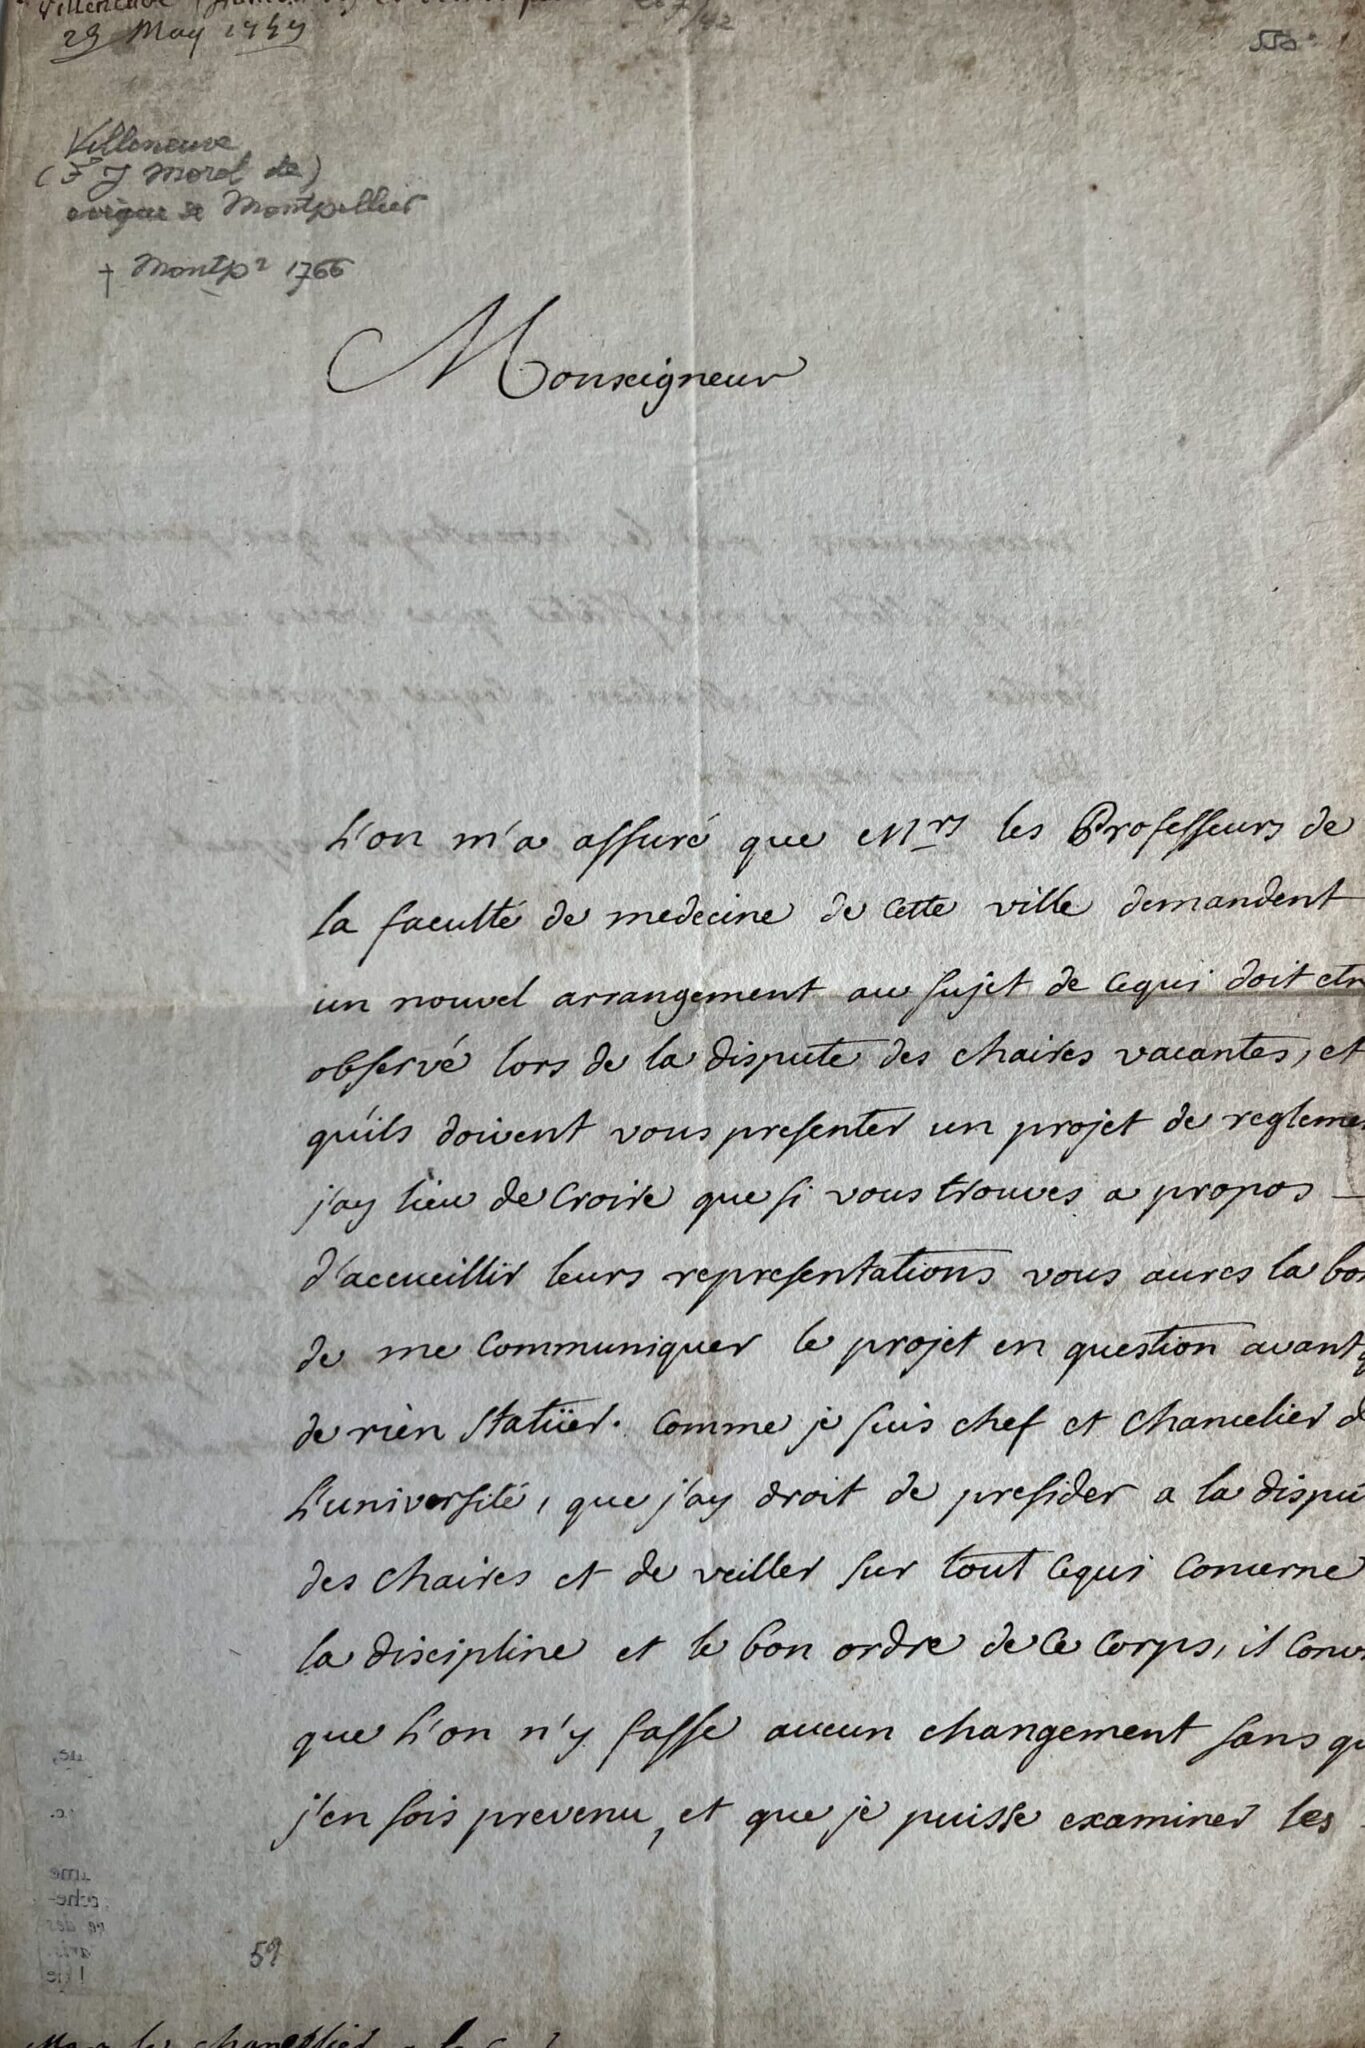 Villeneuve
29 May 1749
550
Villeneuve
(F J Morel de)
evêque de Montpellier
† Montpr 1766
Monseigneur
L'on m'a assuré que Mrs les Professeurs de
la faculté de medecine de cette ville demandent
un nouvel arrangement au sujet de cequi doit etr
observé lors de la dispute des chaires vacantes, et
qu'ils doivent vous presenter un projet de regleme
j'ay lieu de croire que si vous trouves a propos —
d'accueillir leurs representations vous aures la bon
de me communiquer le projet en question avant q
de rien statüer. Comme je suis chef et chancelier d
l'université, que j'ay droit de presider a la dispu
des chaires et de veiller sur tout cequi concerne
la discipline et le bon ordre de ce corps, il conv
que l'on n'y fasse aucun changement sans qu
j'en sois prevenu, et que je puisse examiner les
59